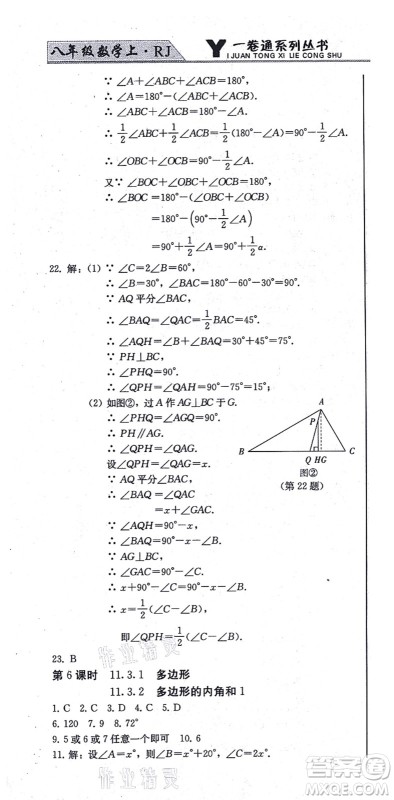 八年级数学上·RJ
一卷通系列丛书
YIJUAN TONG XI LIE CONG SHU
∵ ∠A+∠ABC+∠ACB=180°,
∴ ∠A=180°-(∠ABC+∠ACB).
∴ 1/2∠ABC+1/2∠ACB=90°-1/2∠A.
∴ ∠OBC+∠OCB=90°-1/2∠A.
又∵ ∠BOC+∠OBC+∠OCB=180°,
∴ ∠BOC=180°-(∠OBC+∠OCB)
=180°-(90°-1/2∠A)
=90°+1/2∠A=90°+1/2α.
22. 解:(1)∵ ∠C=2∠B=60°,
∴ ∠B=30°,∠BAC=180°-60°-30°=90°.
∵ AQ平分∠BAC,
∴ ∠BAQ=∠QAC=1/2∠BAC=45°.
∴ ∠AQH=∠B+∠BAQ=30°+45°=75°.
∵ PH⊥BC,
∴ ∠PHQ=90°.
∴ ∠QPH=∠QAG=90°-75°=15°;
(2)如图②,过A作AG⊥BC于G.
∴ ∠PHQ=∠AGQ=90°.
∴ PH∥AG.
∴ ∠QPH=∠QAG.
设∠QPH=∠QAG=x.
∵ AQ平分∠BAC,
∴ ∠BAQ=∠QAC
=x+∠GAC.
∵ ∠AQH=∠B+∠BAQ,
∴ ∠BAQ=90°-x-∠B.
∵ ∠GAC=90°-∠C.
∴ x+90°-∠C=90°-x-∠B.
∴ x=1/2(∠C-∠B),
即∠QPH=1/2(∠C-∠B).
A
P
B
Q HG
C
图②
(第22题)
23. B
第6课时 11.3.1 多边形
11.3.2 多边形的内角和1
1. C 2. C 3. D 4. C 5. D
6. 120 7. 9 8. 72°
9. 5或6或7任意一个即可 10. 6
11. 解:设∠A=x°,则∠B=x°+20°,∠C=2x°.
作业精灵
作业精灵
答案圈
MXQE.COM